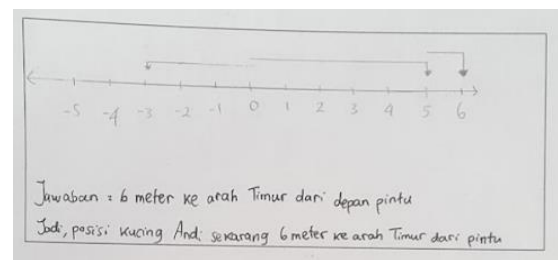 -5 -4 -3 -2 -1 0 1 2 3 4 5 6
Jawaban = 6 meter ke arah Timur dari depan pintu
Jadi, posisi kucing Andi sekarang 6 meter ke arah Timur dari pintu